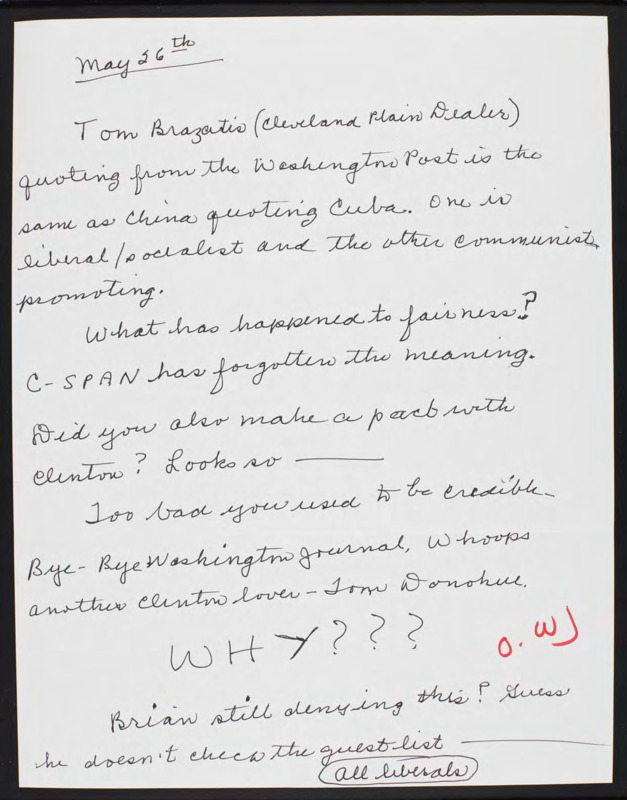 May 26th
Tom Brazatis (Cleveland Plain Dealer)
quoting from the Washington Post is the
same as China quoting Cuba. One is
liberal/socialist and the other communist
promoting.
What has happened to fairness?
C-SPAN has forgotten the meaning.
Did you also make a pact with
Clinton? Looks so ———
Too bad you used to be credible.
Bye-Bye Washington Journal, Whoops
another Clinton lover - Tom Donohue.
WHY???
O. WJ
Brian still denying this? Guess
he doesn't check the guest list ———
All liberals